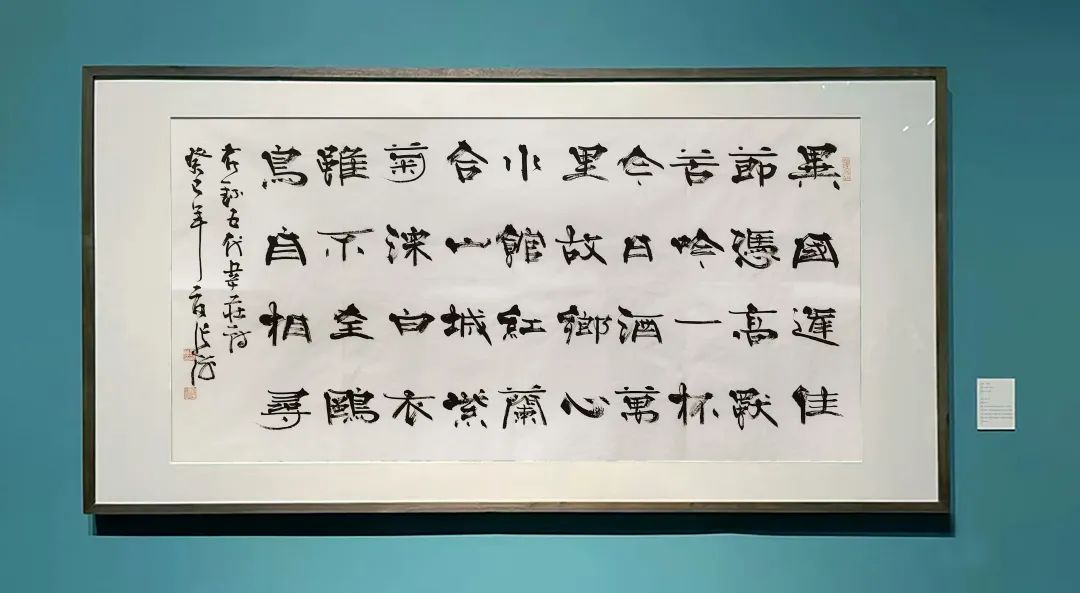 異國逢佳
節憑高獨
苦吟一杯
今日酒萬
里故鄉心
小館紅蘭
合山城紫
菊深白衣
雖不至鷗
鳥自相尋
右錄五代韋莊詩
癸巳年